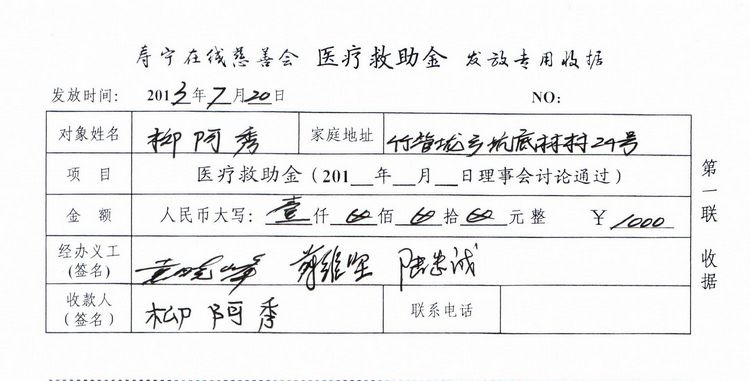 寿宁在线慈善会 医疗救助金 发放专用收据
发放时间: 2013年7月20日 NO:
对象姓名 柳阿秀 家庭地址 竹管垅乡坑底林村24号
项目 医疗救助金(201__年__月__日理事会讨论通过)
金额 人民币大写: 壹仟 佰 拾 元整 ¥1000
经办义工
(签名)
收款人
(签名) 柳阿秀 联系电话
第一联 收据